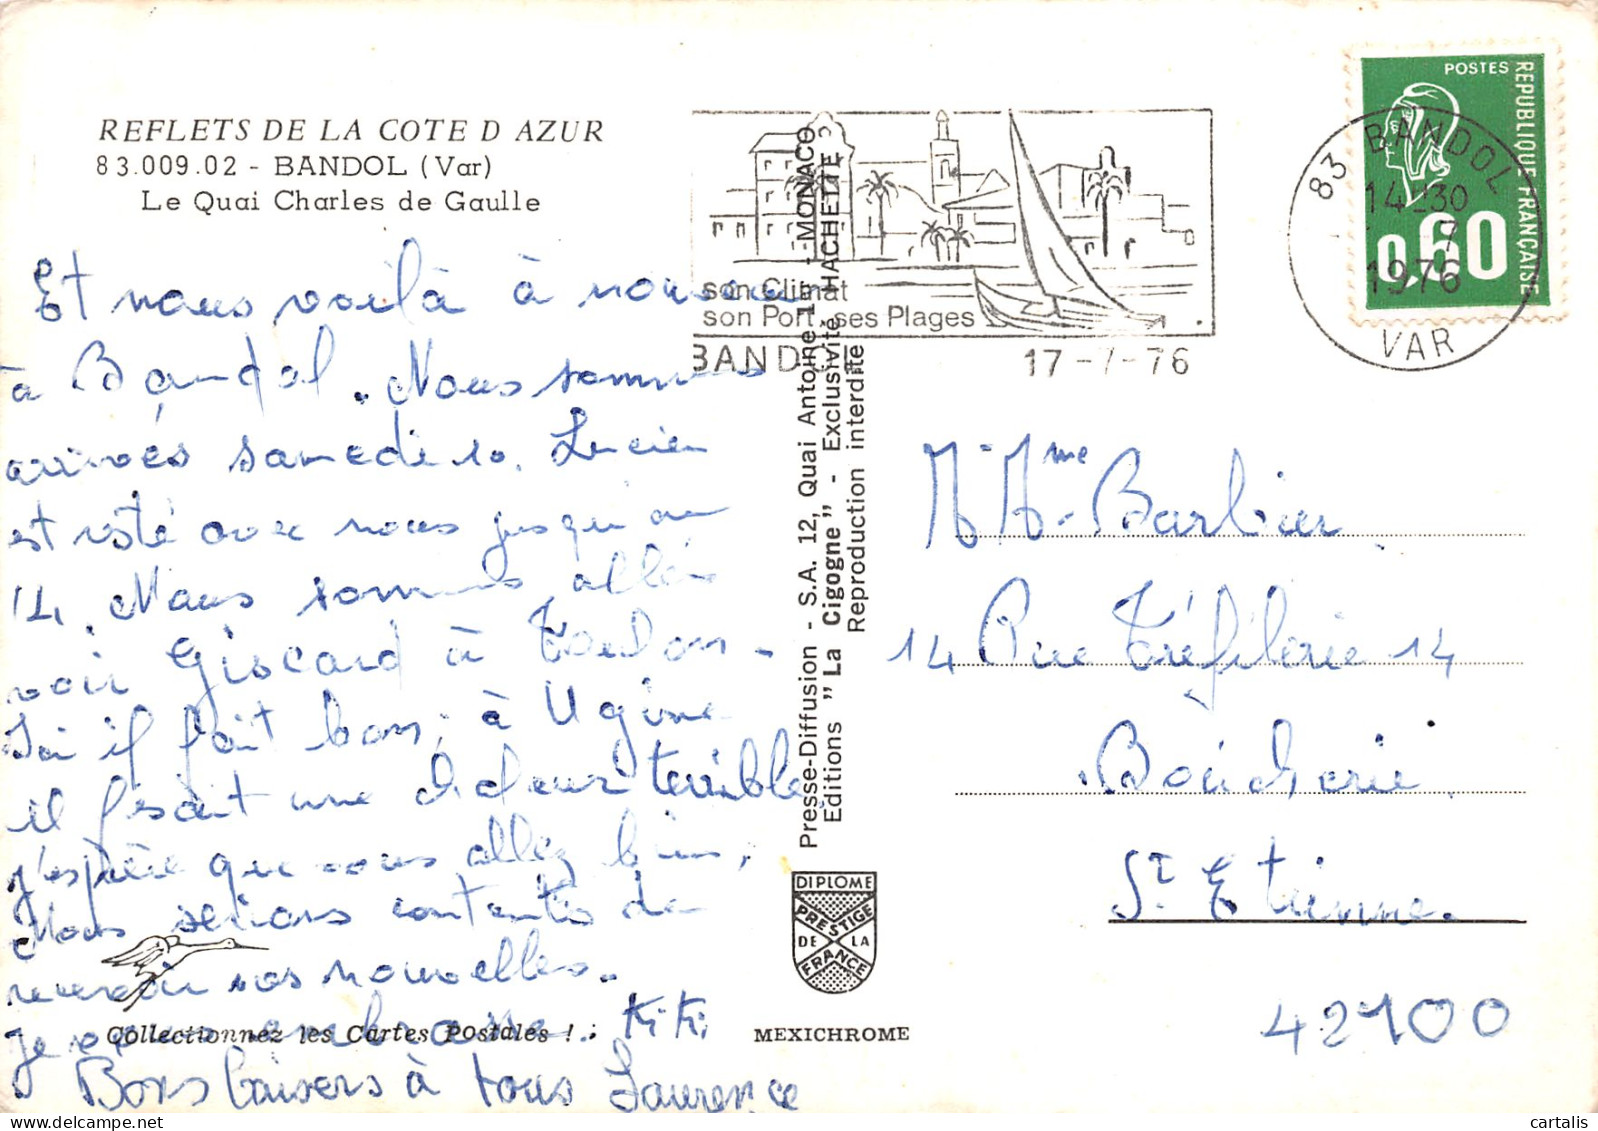 REFLETS DE LA COTE D AZUR
83.009.02 - BANDOL (Var)
Le Quai Charles de Gaulle
Et nous voilà à nouveau
à Bandol. Nous sommes
arrivés samedi 10. Lucien
est resté avec nous jusqu'au
14. Nous sommes allés
voir Giscard à Toulon.
Ici il fait bon, à Ugine
il fesait une chaleur terrible,
j'espère que vous allez bien,
Nous serions contents de
recevoir vos nouvelles.
je vous embrasse. Kiki
Bons baisers à tous Laurence
Collectionnez les Cartes Postales !
Presse-Diffusion - S.A. 12, Quai Antoine 1er - MONACO
Editions "La Cigogne" - Exclusivité HACHETTE
Reproduction interdite
DIPLOME
PRESTIGE
DE LA
FRANCE
MEXICHROME
son Climat
son Port, ses Plages
BANDOL 17-7-76
POSTES
REPUBLIQUE FRANÇAISE
0,60
83 BANDOL
14H30
1976
VAR
M. Mme Barbier
14 Rue Tréfilerie 14
Boucherie
St Etienne.
42100
cartalis